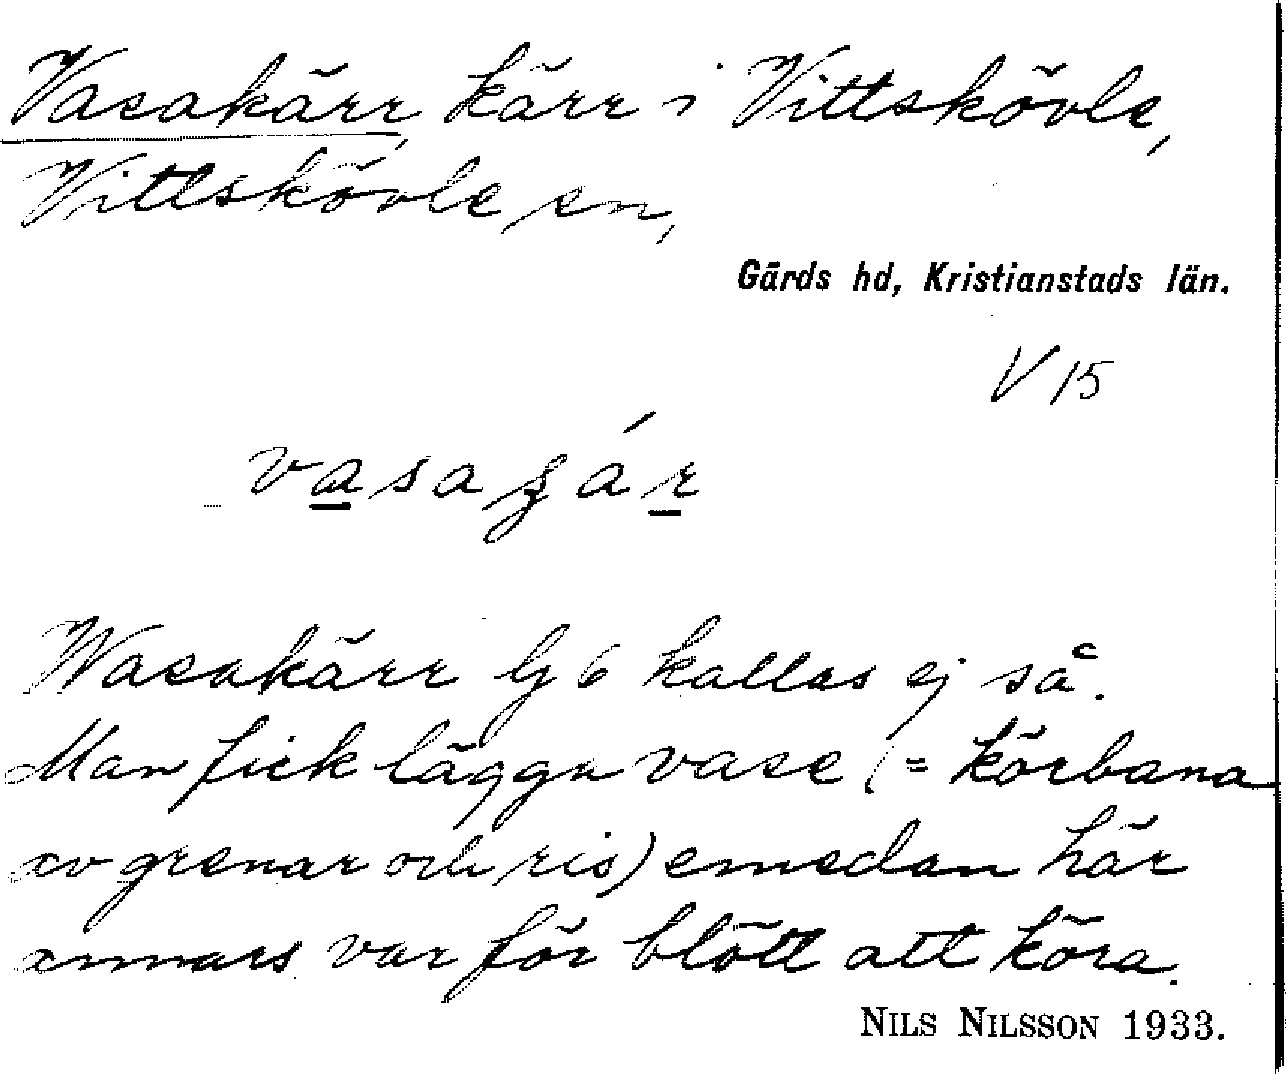 Vasakärr, kärr i Vittskövle,
Vittskövle sn,
Gärds hd, Kristianstads län.
V 15
Wasakärr G 6 kallas ej så.
Man fick lägga vase (= körbana
av grenar och ris) emedan här
annars var för blött att köra.
NILS NILSSON 1933.